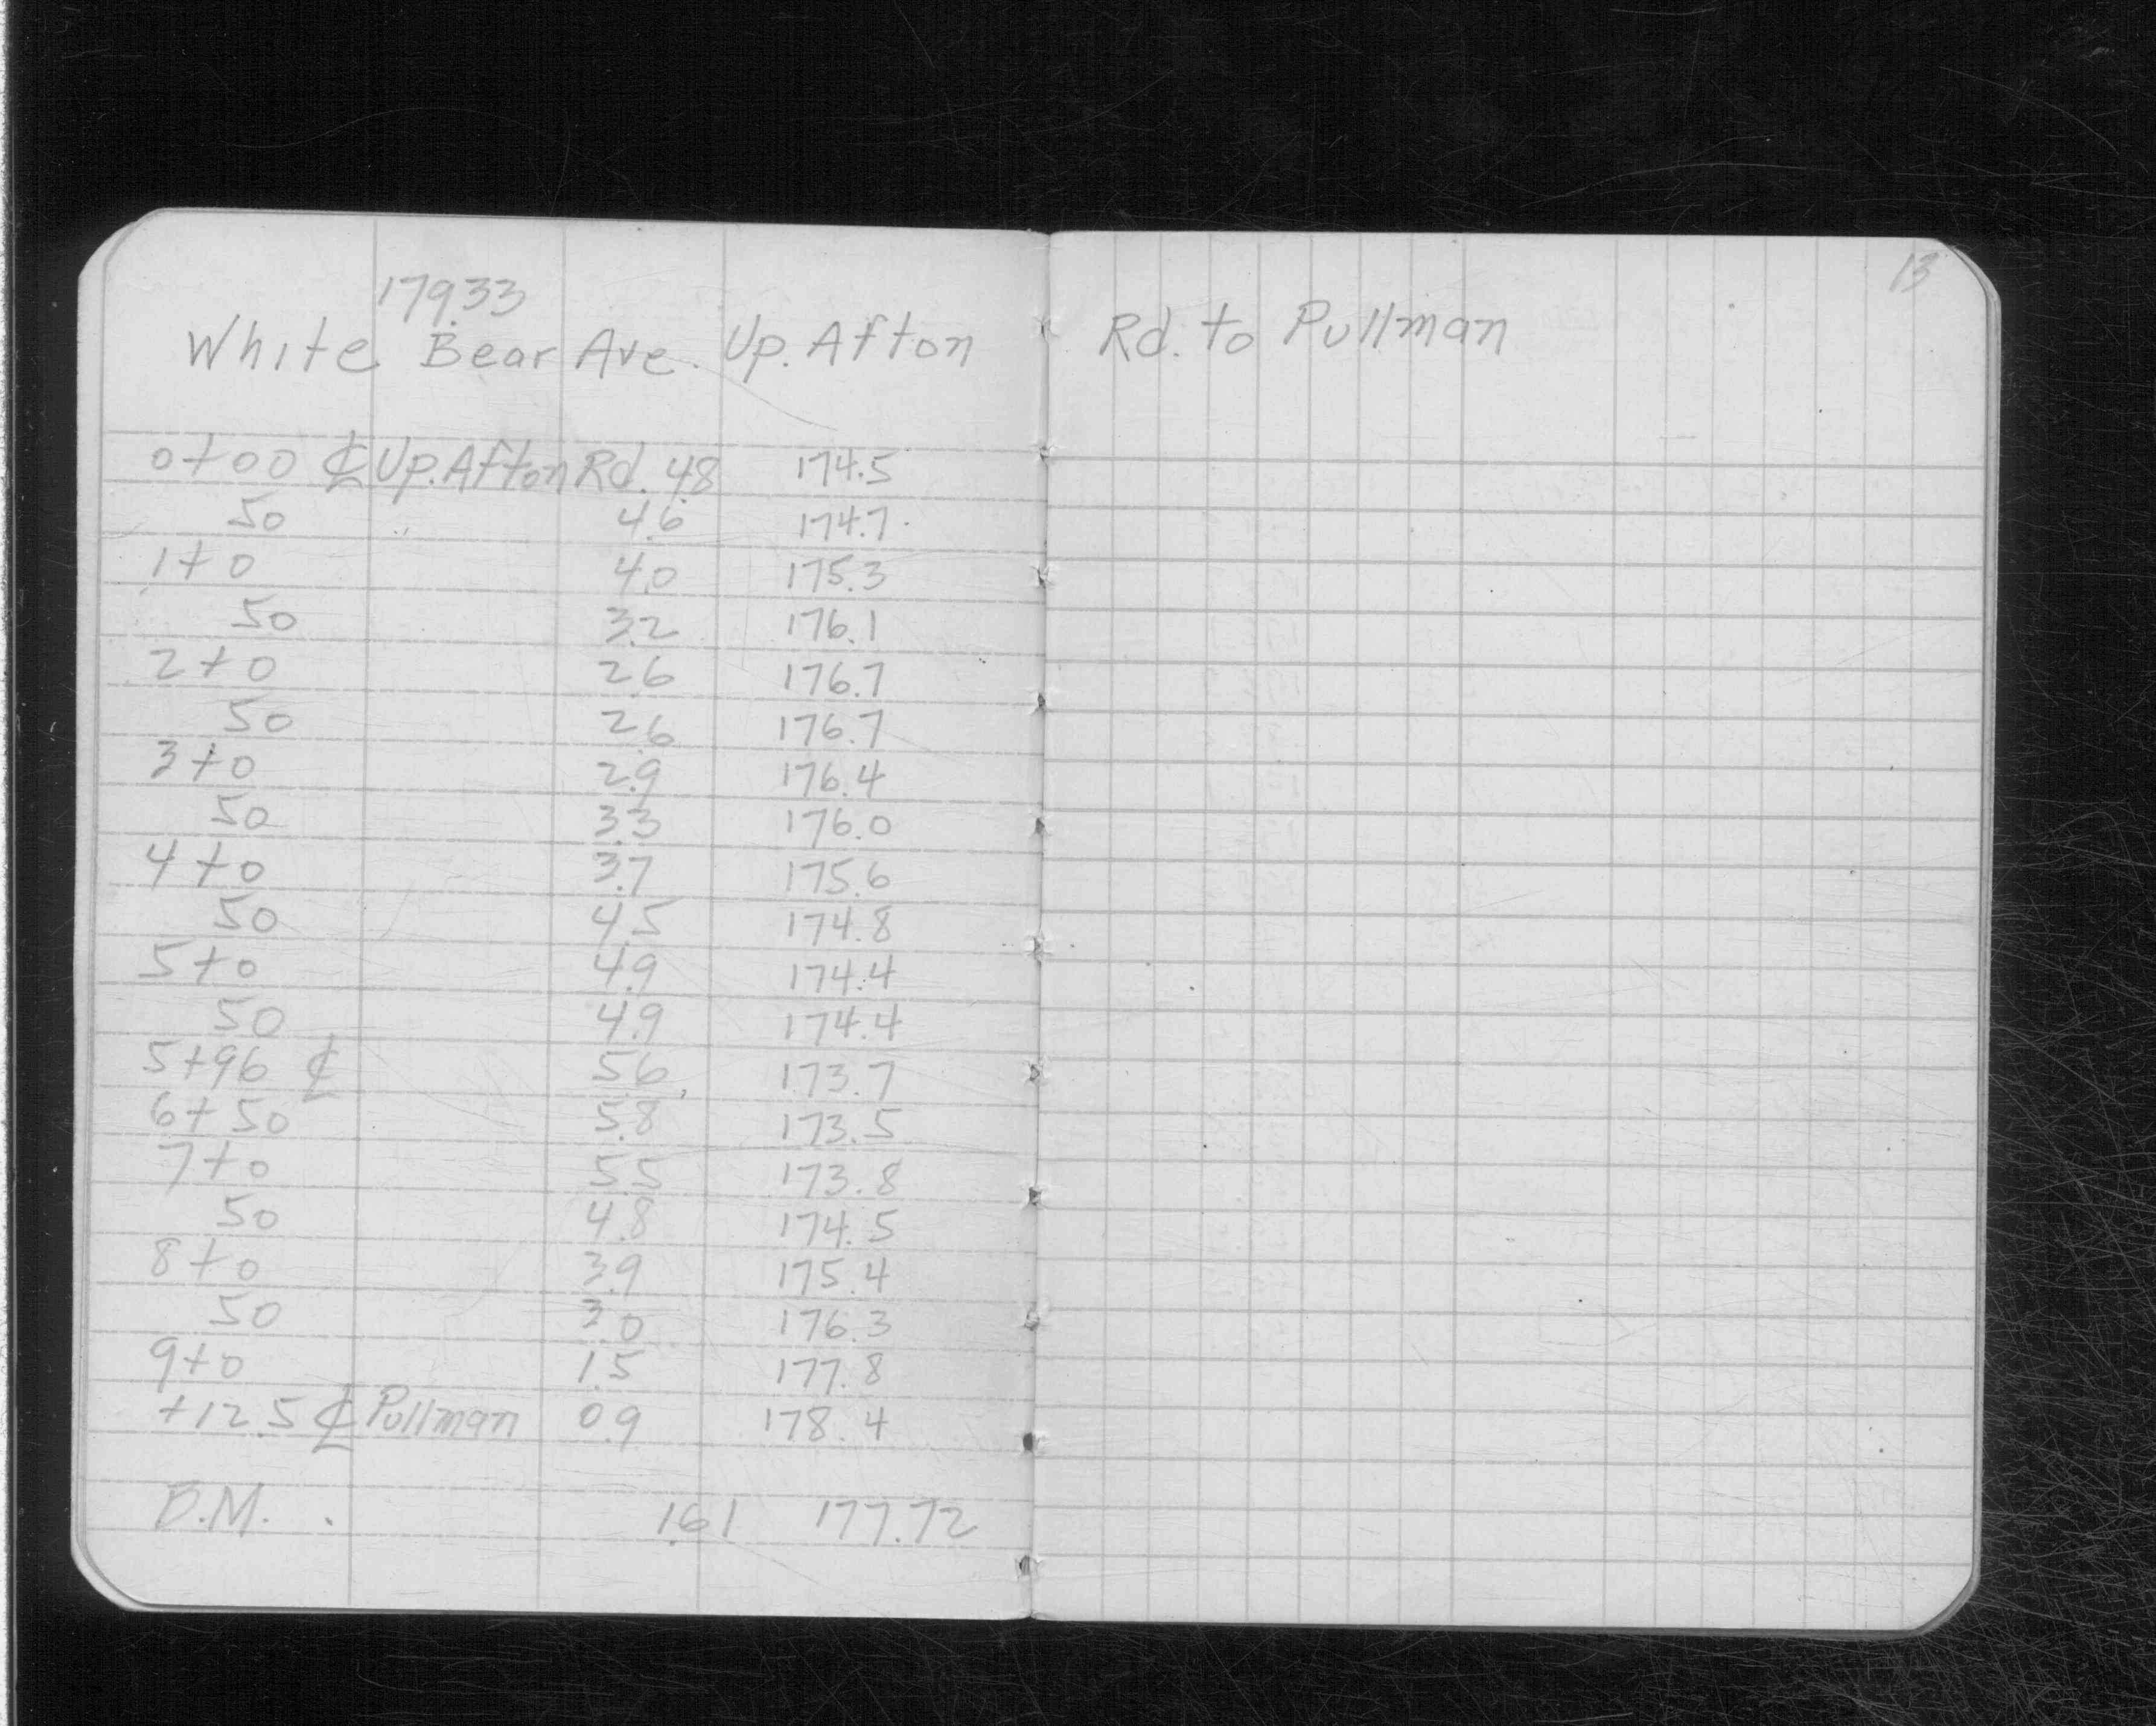 13
179.33
White Bear Ave. Up. Afton Rd. to Pullman
0+00 ℄ Up. Afton Rd. 4.8 174.5
50 4.6 174.7
1+0 4.0 175.3
50 3.2 176.1
2+0 2.6 176.7
50 2.6 176.7
3+0 2.9 176.4
50 3.3 176.0
4+0 3.7 175.6
50 4.5 174.8
5+0 4.9 174.4
50 4.9 174.4
5+96 ℄ 5.6 173.7
6+50 5.8 173.5
7+0 5.5 173.8
50 4.8 174.5
8+0 3.9 175.4
50 3.0 176.3
9+0 1.5 177.8
+12.5 ℄ Pullman 0.9 178.4
B.M. 1.61 177.72